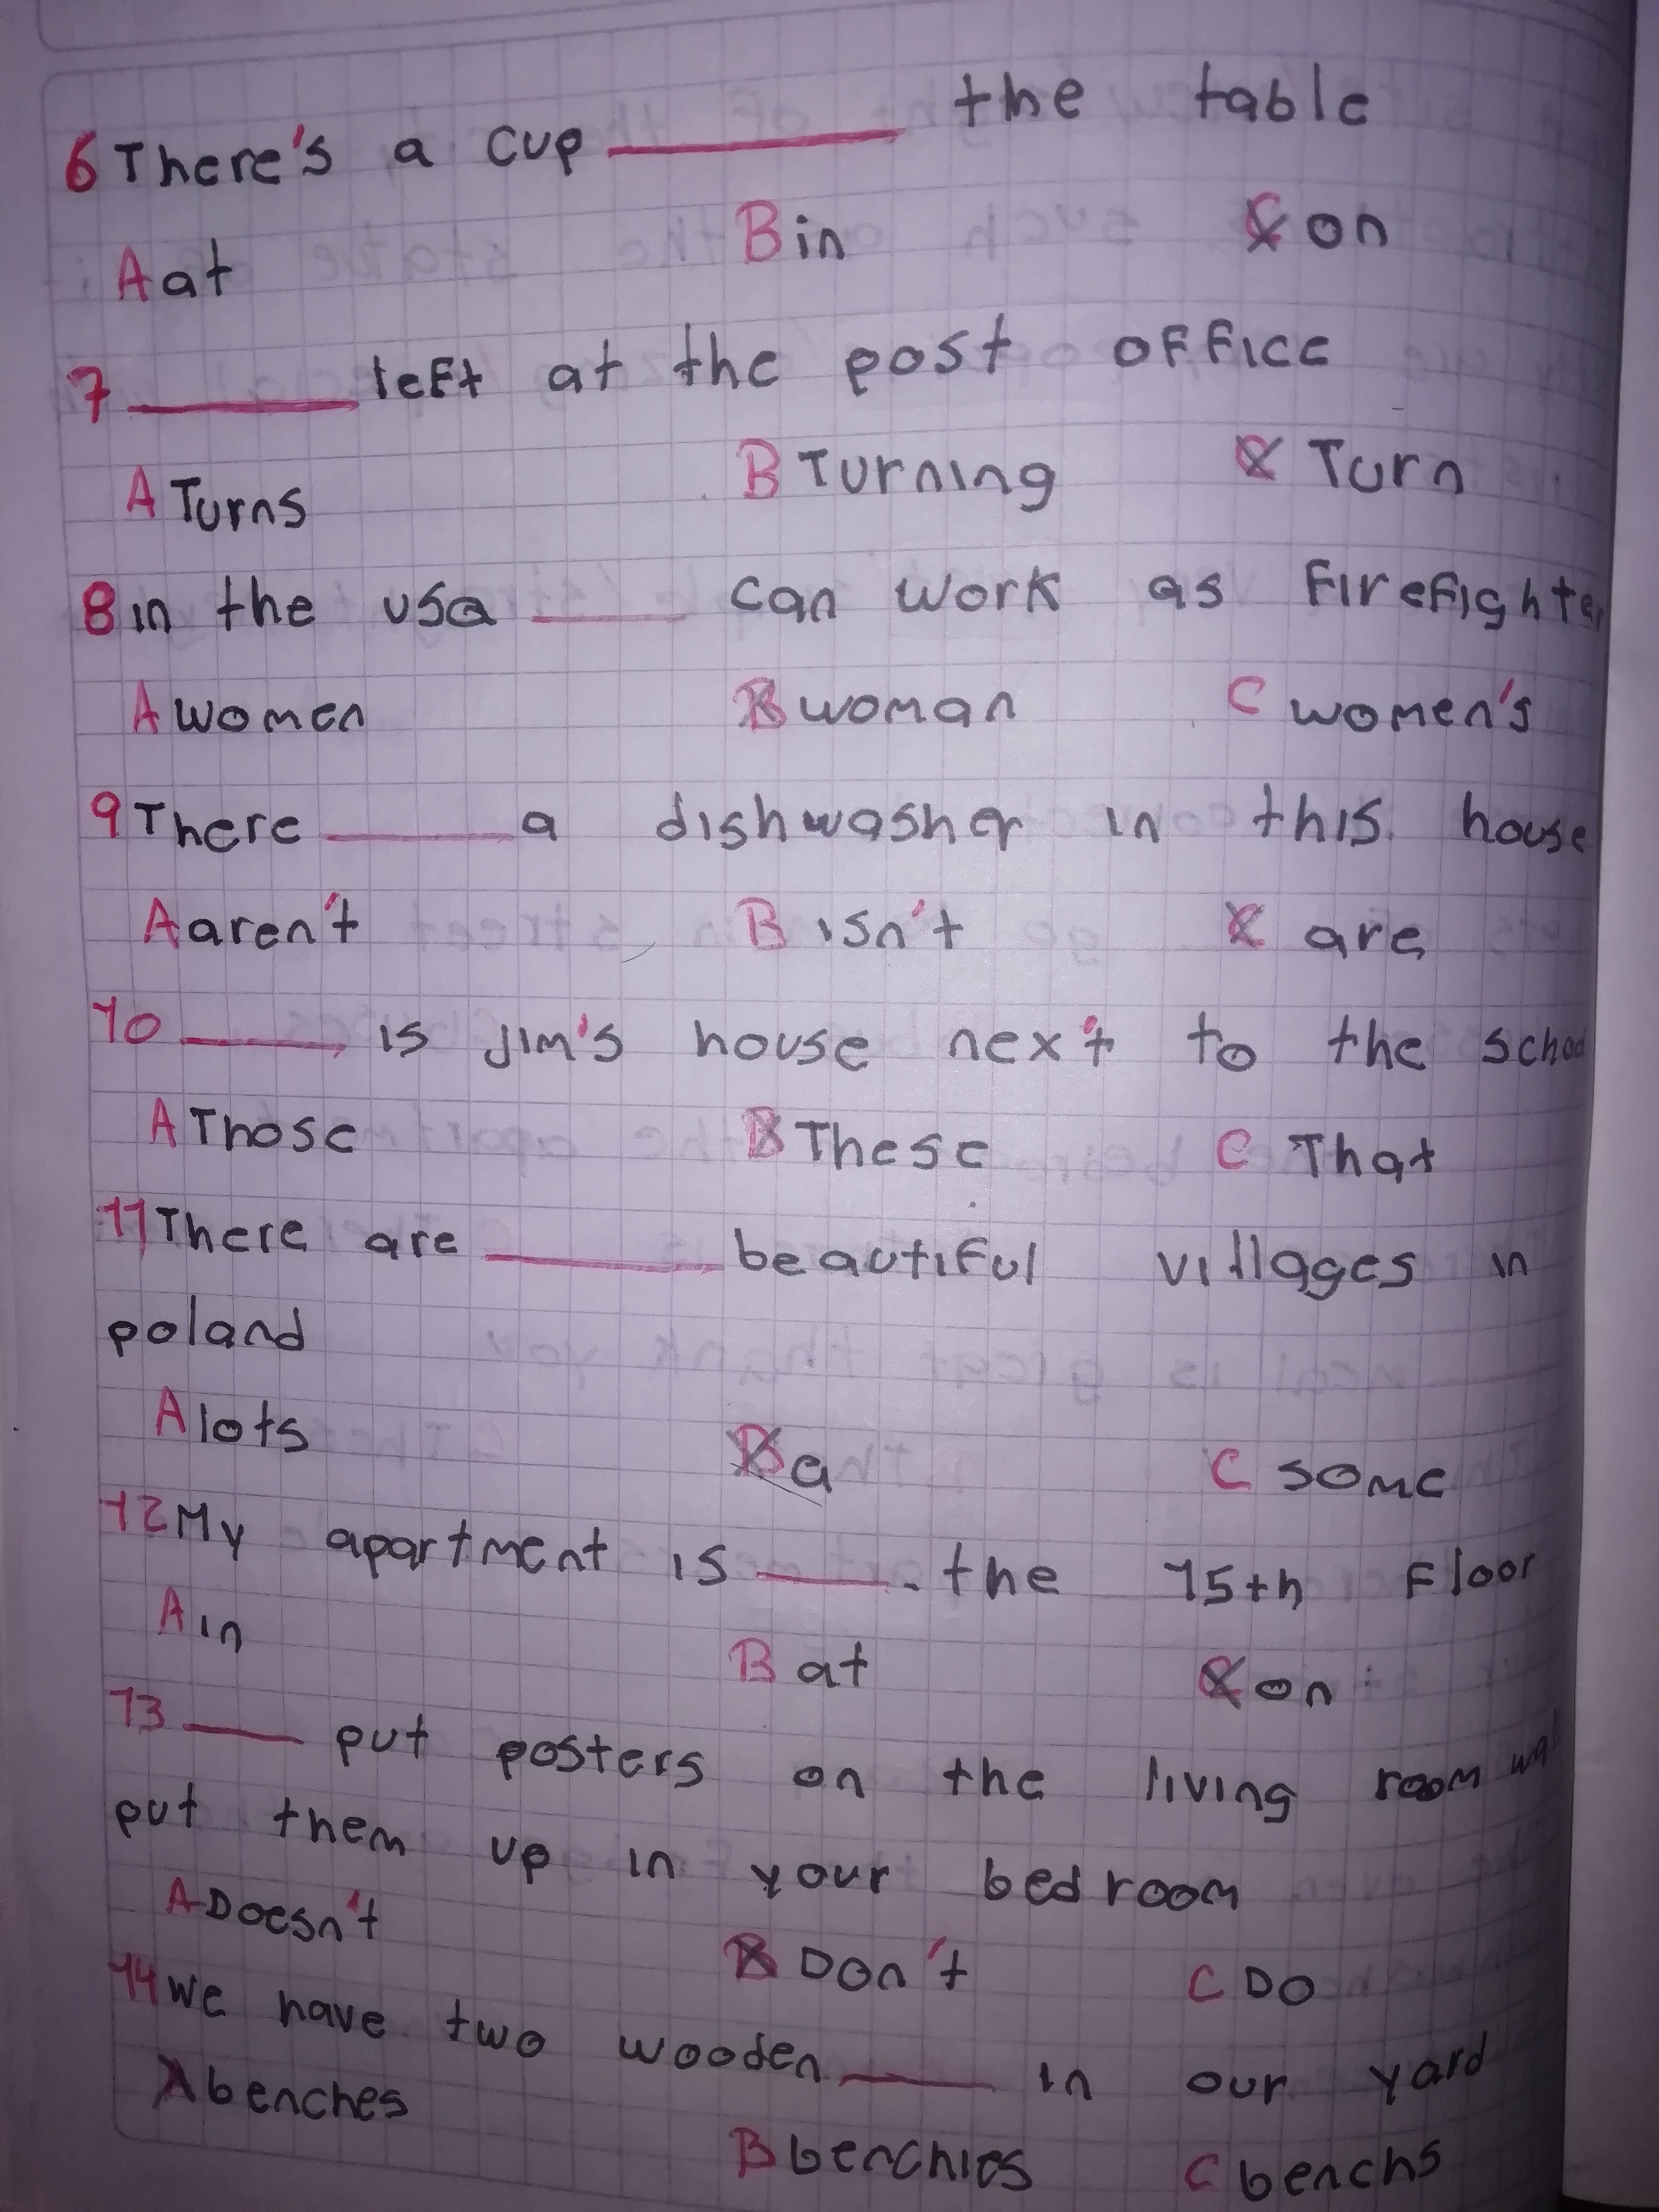 6 There's a cup ______ the table
A at B in C on
7 ______ left at the post office
A Turns B Turning C Turn
8 in the usa ______ can work as firefighter
A women B woman C women's
9 There ______ a dishwasher in this house
A aren't B isn't C are
10 ______ is jim's house nex't to the school
A Those B These C That
11 There are ______ beautiful villages in
poland
A lots B a C some
12 My apartment is ______. the 15th floor
A in B at C on
13 ______ put posters on the living room
put them up in your bedroom
A Doesn't B Don't C Do
14 we have two wooden ______ in our yard
A benches B benchies C benchs